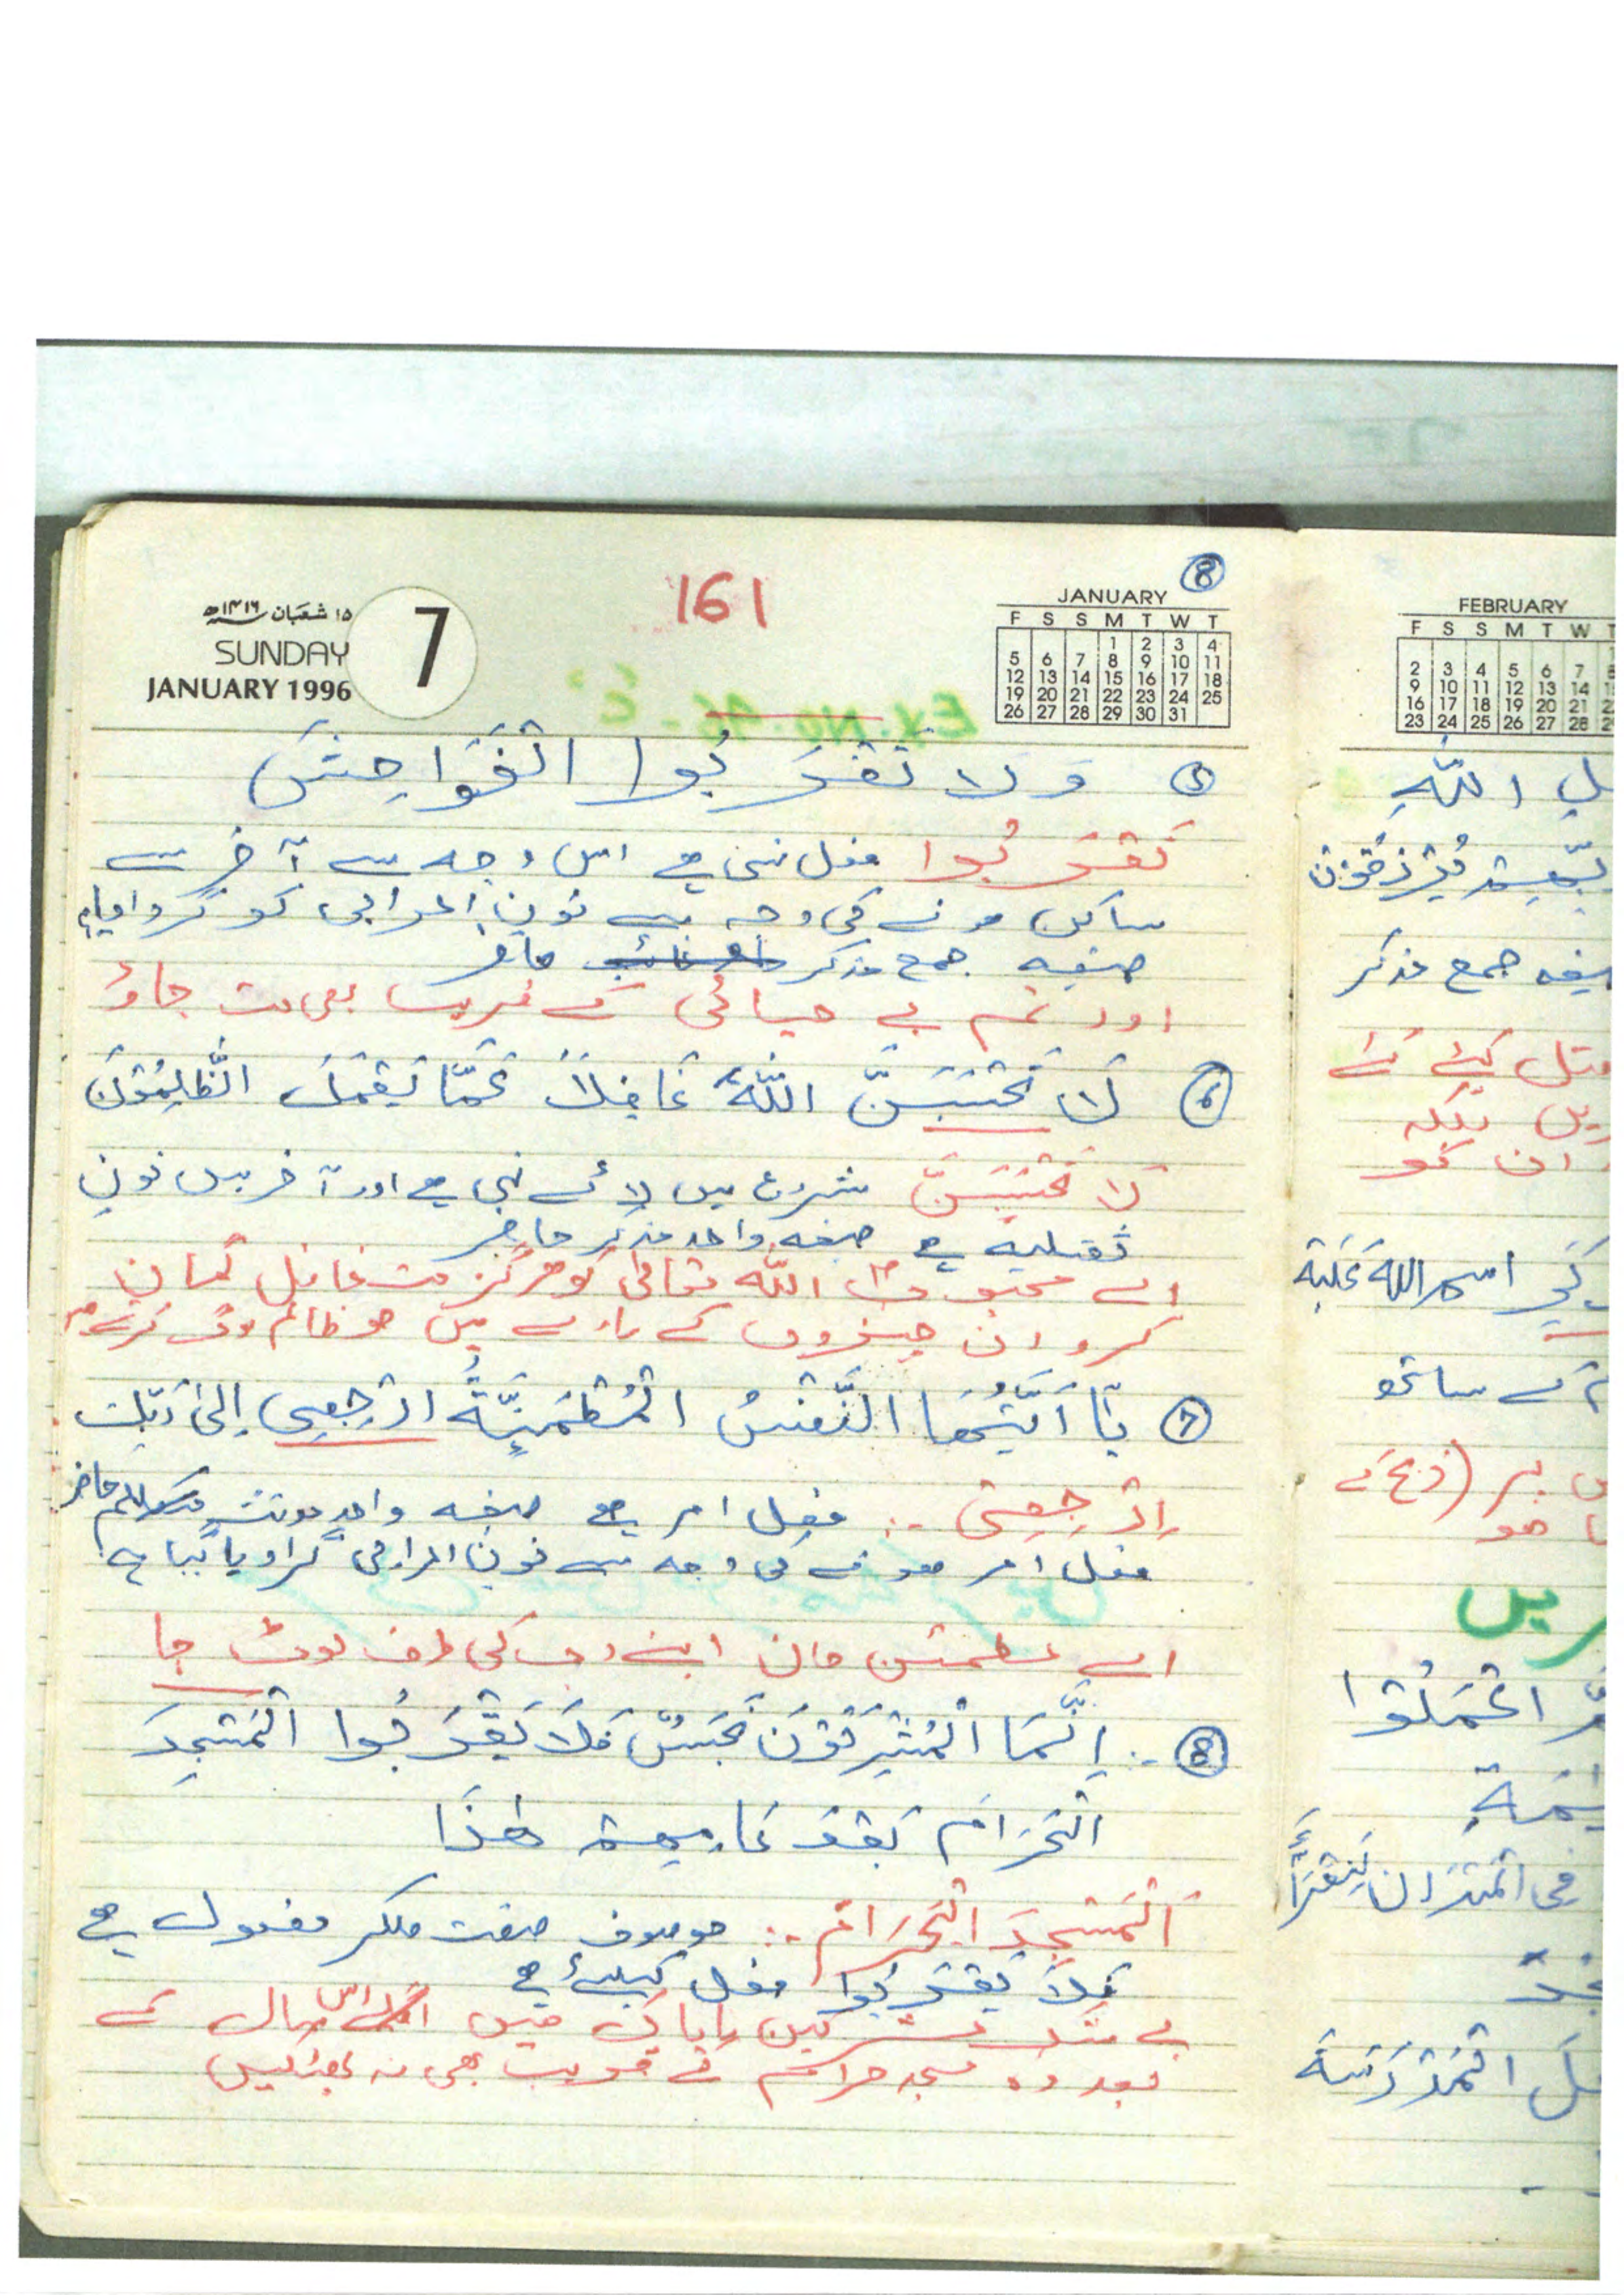 8
161
١٥ شعبان ١٤١٦ھ
SUNDAY
JANUARY 1996
7
JANUARY
F S S M T W T
1 2 3 4
5 6 7 8 9 10 11
12 13 14 15 16 17 18
19 20 21 22 23 24 25
26 27 28 29 30 31
⑤ وَلَا تَقْرَبُوا الْفَوَاحِشَ
تَقْرَبُوا فعل نہی ہے اس وجہ سے آخر سے
ساکن ہونے کی وجہ سے نون اعرابی کو گروا دیا ہے
صیغہ جمع مذکر حاضر
اور تم بے حیائی کے قریب بھی مت جاؤ
⑥ لَا تَحْسَبَنَّ اللّٰهَ غَافِلًا عَمَّا يَعْمَلُ الظَّالِمُوْنَ
لَا تَحْسَبَنَّ شروع میں لائے نہی ہے اور آخر میں نون
ثقیلیہ ہے صیغہ واحد مذکر حاضر
اے محبوب اللّٰه تعالیٰ کو ہرگز مت غافل گمان
کرو ان چیزوں کے بارے میں جو ظالم لوگ کرتے ہیں
⑦ يَا اَيَّتُهَا النَّفْسُ الْمُطْمَئِنَّةُ ارْجِعِى اِلٰى رَبِّكِ
اِرْجِعِىْ :. فعل امر ہے صیغہ واحد مونث حاضر
فعل امر ہونے کی وجہ سے نون اعرابی گرا دیا گیا ہے
اے مطمئن جان اپنے رب کی طرف لوٹ جا
⑧ :. اِنَّمَا الْمُشْرِكُوْنَ نَجَسٌ فَلَا يَقْرَبُوا الْمَسْجِدَ
الْحَرَامَ بَعْدَ عَامِهِمْ هٰذَا
اَلْمَسْجِدَ الْحَرَامَ :. موصوف صفت ملکر مفعول ہے
فَلَا يَقْرَبُوا فعل کیلئے ہے
بے شک مشرکین ناپاک ہیں اس سال کے
بعد وہ مسجد حرام کے قریب بھی نہ بھٹکیں
FEBRUARY
F S S M T W
2 3 4 5 6 7
9 10 11 12 13 14
16 17 18 19 20 21
23 24 25 26 27 28
اللّٰهِ
جمع مذکر
قتل کیئے گئے
بلکہ
ان کو
اسم اللّٰه عَلَيْهِ
کے ساتھ
ہو
اعْمَلُوا
فِى الْمَيْزَان